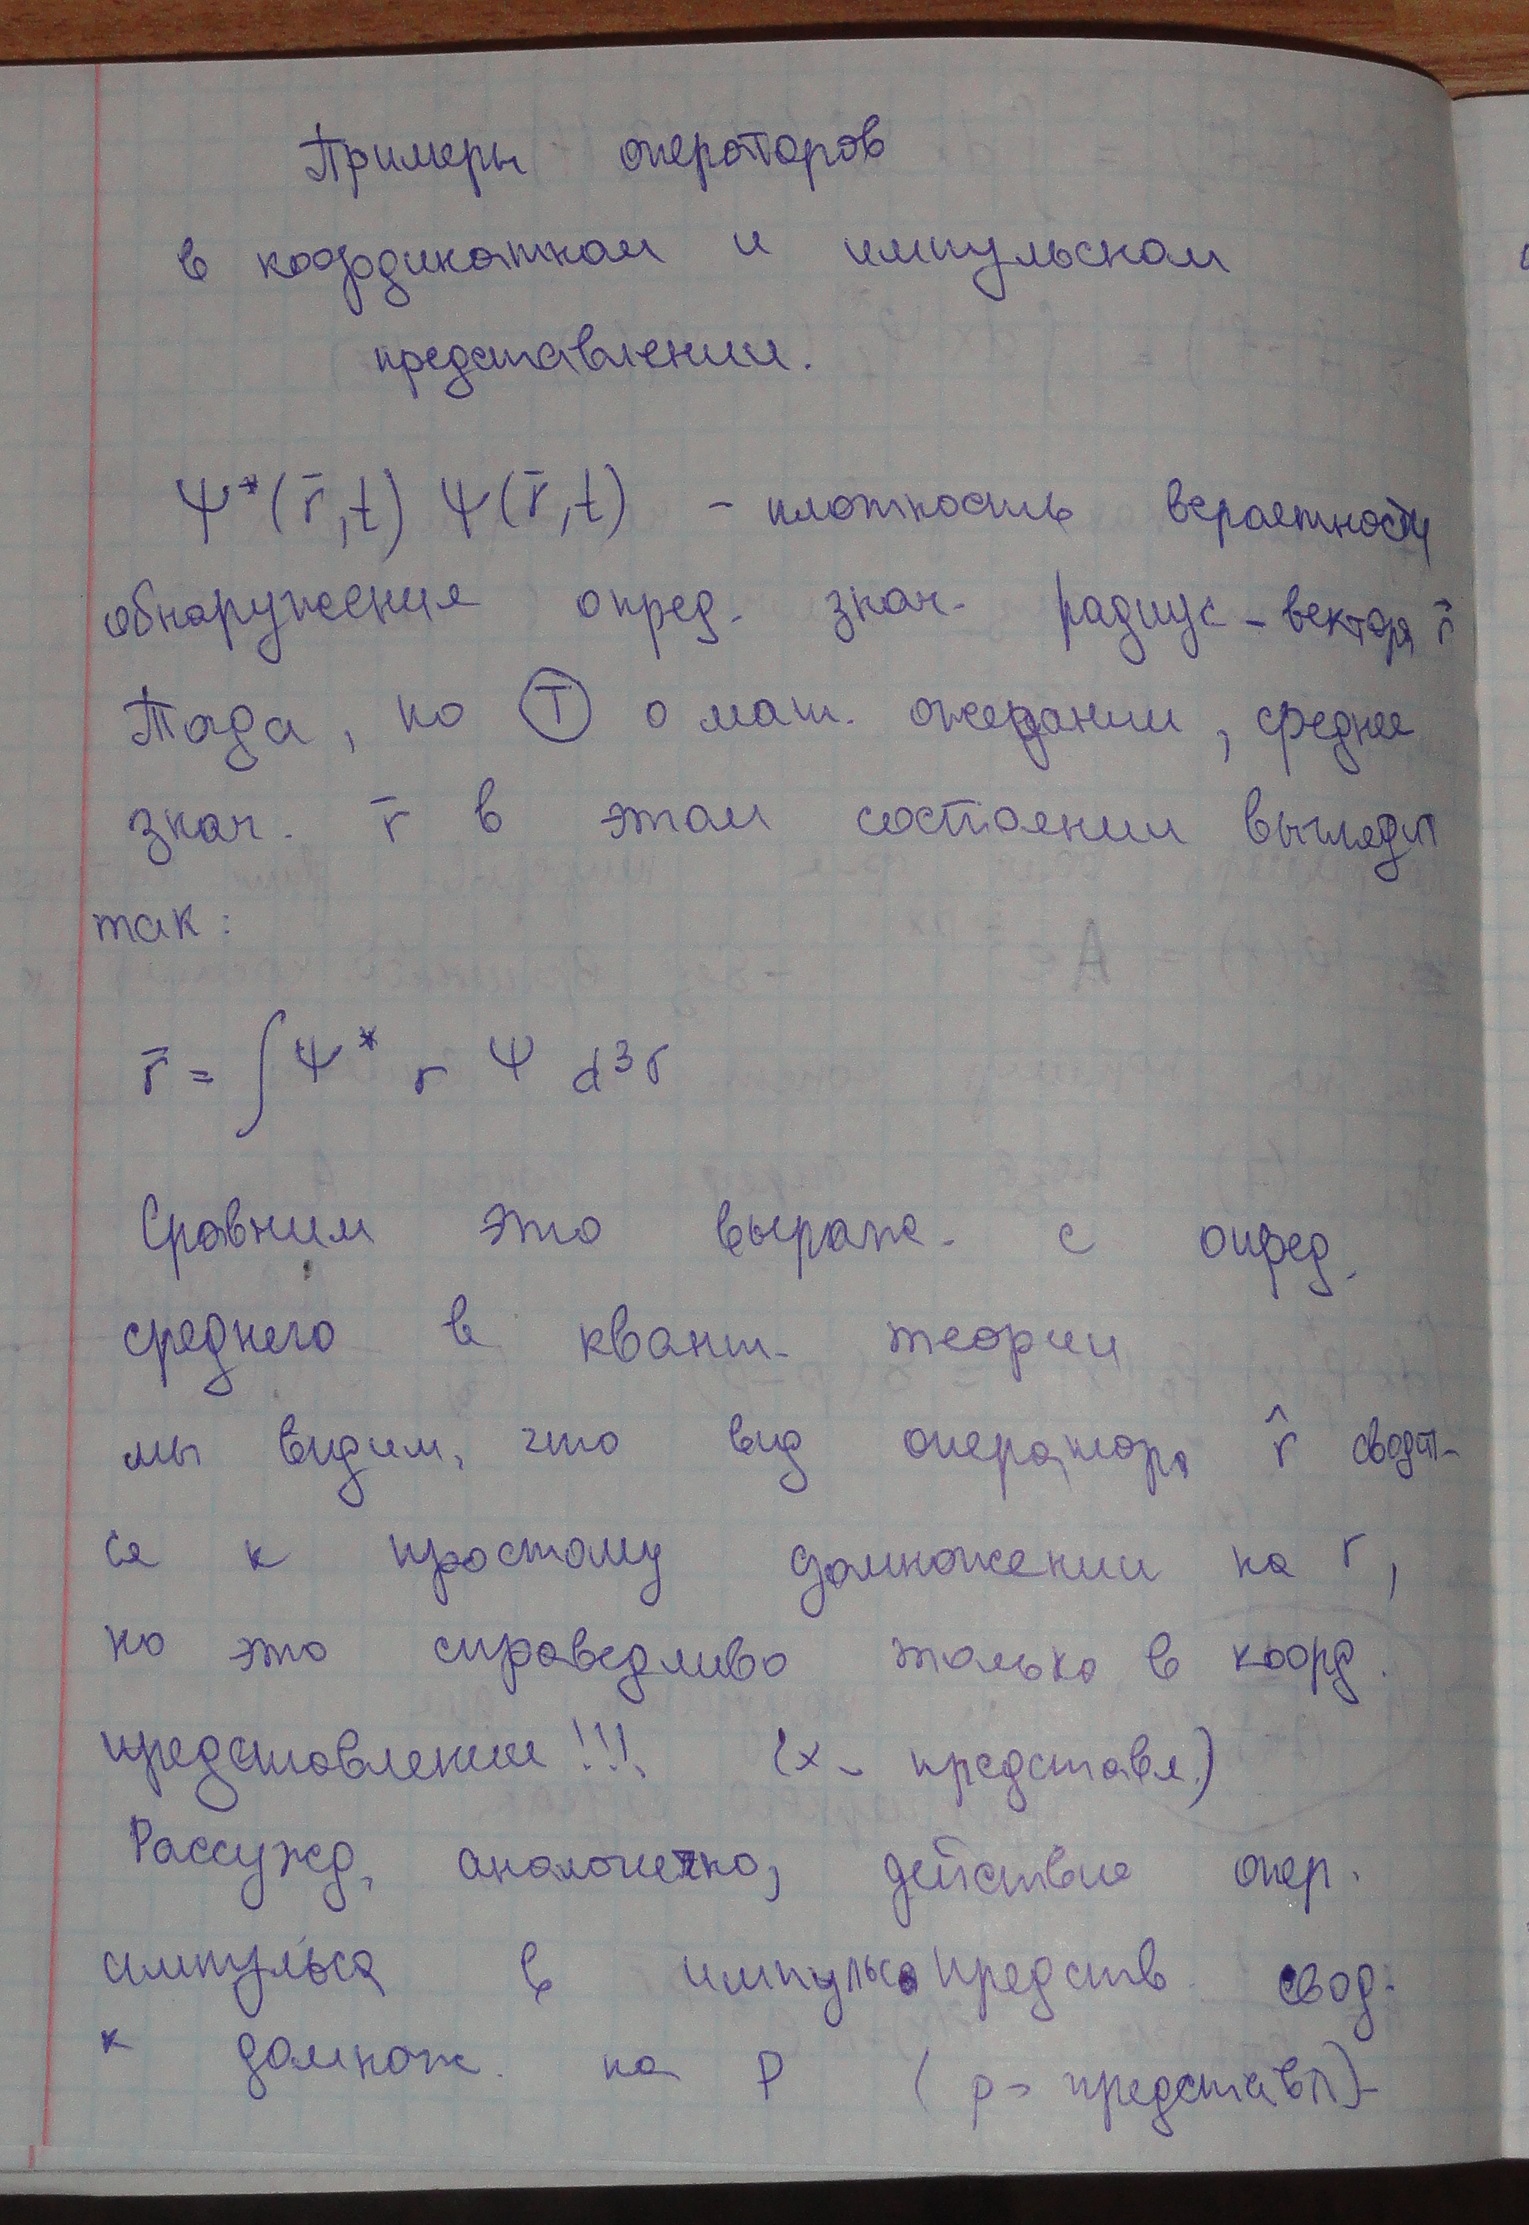 Примеры операторов
в координатном и импульсном
представлении.
Ψ*(r̄,t) Ψ(r̄,t) - плотность вероятности
обнаружения опред. знач. радиус-вектора r̄
Тогда, по Ⓣ о мат. ожидании, среднее
знач. r̄ в этом состоянии выглядит
так:
r̄ = ∫ Ψ* r Ψ d³r
Сравним это выраж. с опред.
среднего в квант. теории
мы видим, что вид оператора r̂ сводит-
ся к простому домножении на r,
но это справедливо только в коорд.
представлении!!! (x - представл.)
Рассужд. аналогично, действие опер.
импульса в импульс представ. свод.
к домнож. на p (p - представл)